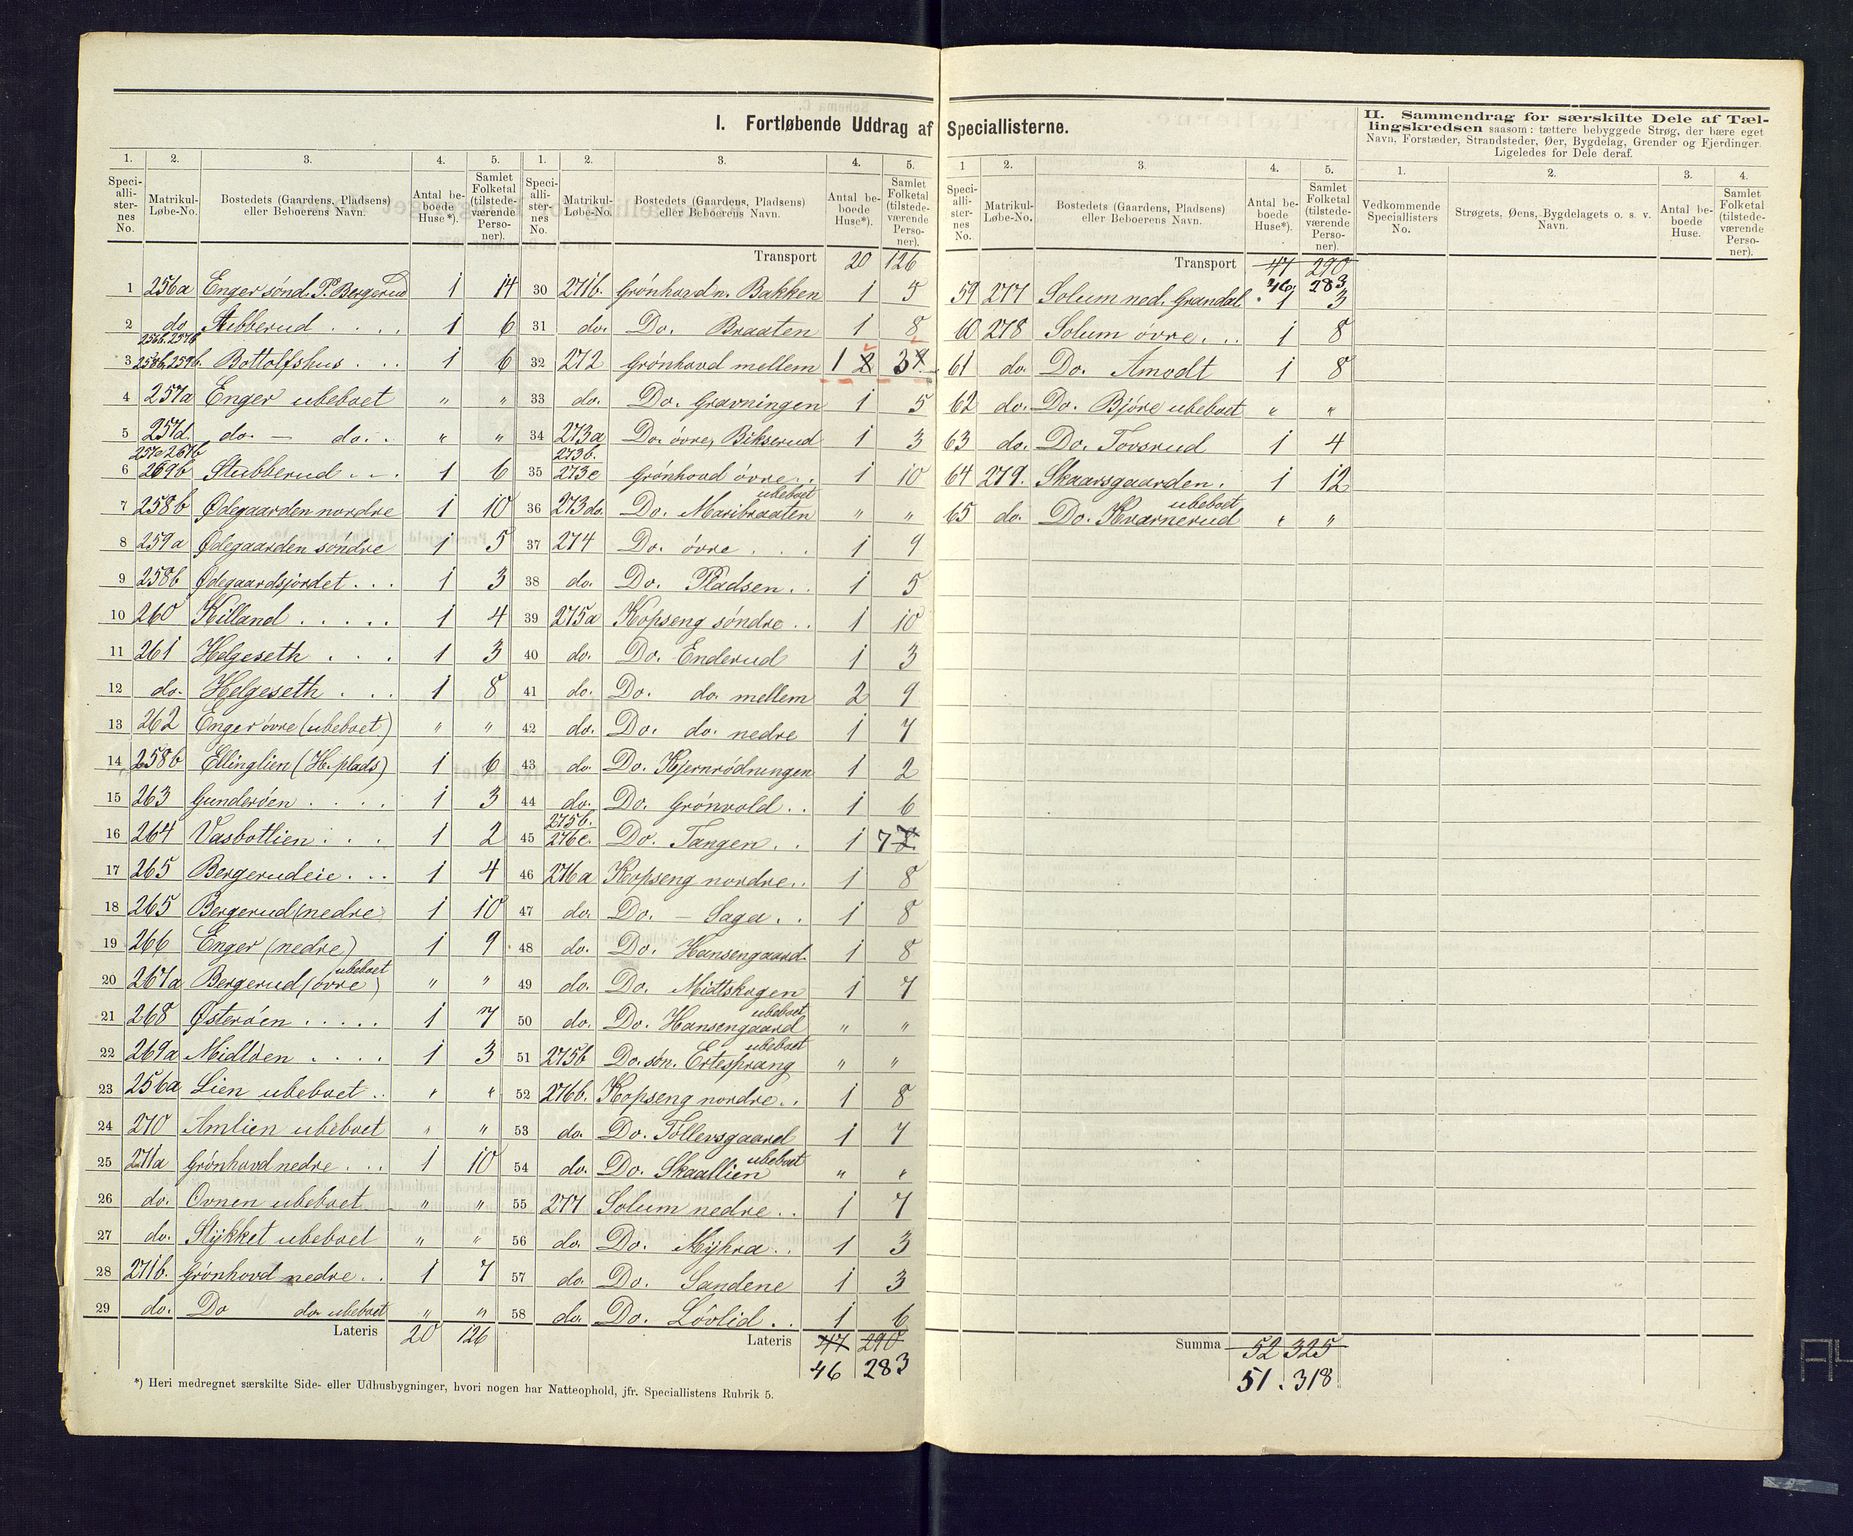 I. Fortløbende Uddrag af Speciallisterne.
1. 2. 3. 4. 5.
Speciallisternes No. Matrikul-Løbe-No. Bostedets (Gaardens, Pladsens) eller Beboerens Navn. Antal beboede Huse*). Samlet Folketal (tilstedeværende Personer).
1 256a Enger sönd. P. Bergerud 1 14
2 do Stubberud . . . . 1 6
3 256b. 257b. 258b, 259b. Bottolfshus . . . 1 6
4 257a Enger ubeboet " "
5 257d. do. — do. . " "
6 257c 267b 269b Stubberud . . . 1 6
7 258b Ødegaarden nordre 1 10
8 259a Ødegaarden söndre 1 5
9 258b Ødegaardsjordet . . . 1 3
10 260 Killand . . . . . 1 4
11 261 Helgeseth . . . 1 3
12 do. Helgeseth . . . 1 8
13 262 Enger övre (ubeboet) " "
14 258b Ellinglien (H. plads) 1 6
15 263 Gunderöen . . . . 1 3
16 264 Vasbotlien . . . 1 2
17 265 Bergerudeie . . . 1 4
18 265 Bergerud (nedre) 1 10
19 266 Enger (nedre) 1 9
20 267a Bergerud (övre) ubeboet " "
21 268 Østeröen . . . . . 1 7
22 269a Midlöen . . . . 1 3
23 256a Lien ubeboet . . " "
24 270 Amlien ubeboet " "
25 271a Grönhovd nedre . . . 1 10
26 do. Ovnen ubeboet " "
27 do. Stykket ubeboet " "
28 271b. Grönhovd nedre . . 1 7
29 do. Do do. ubeboet " "
Lateris 20 126
*) Heri medregnet særskilte Side- eller Udhusbygninger, hvori nogen har Natteophold, jfr. Speciallistens Rubrik 5.
1. 2. 3. 4. 5.
Speciallisternes No. Matrikul-Løbe-No. Bostedets (Gaardens, Pladsens) eller Beboerens Navn. Antal beboede Huse*). Samlet Folketal (tilstedeværende Personer).
Transport 20 126
30 271b. Grönhovd n. Bakken 1 5
31 do. Do. Braaten 1 8
32 272 Grönhovd mellem 1 2 3
33 do. Do. Gravningen 1 5
34 273a Do. övre, Bikserud 1 3
35 273b. 273c Grönhovd övre . . 1 10
36 273d. Do. Maribraaten ubeboet " "
37 274 Do. övre . . . 1 9
38 do. Do. Pladsen . . 1 5
39 275a Kopseng söndre . . 1 10
40 do. Do. Enderud 1 3
41 do. Do. do. mellem 2 9
42 do. Do. do. nedre 1 7
43 do. Do. Kjernrödningen 1 2
44 do. Do. Grönvold . . 1 6
45 275b. 276c. Do. Tangen . . 1 7
46 276a Kopseng nordre . . 1 8
47 do. Do. — Saga . . 1 8
48 do. Do. Hansengaard. 1 8
49 do. Do. Midtskogen 1 7
50 do. Do. Hansengaard ubeboet " "
51 275b Do. sön. Ertesprang ubeboet " "
52 276b. Kopseng nordre . . 1 8
53 do. Do. Töllevsgaard 1 7
54 do. Do. Skaallien ubeboet " "
55 277 Solum nedre . . 1 7
56 do. Do. Myhra . . 1 3
57 do. Do. Sandene 1 3
58 do. Do. Lövlid . . 1 6
Lateris 47 290
46 283
1 2. 3. 4. 5.
Speciallisternes No. Matrikul-Løbe-No. Bostedets (Gaardens, Pladsens) eller Beboerens Navn. Antal beboede Huse*). Samlet Folketal (tilstedeværende Personer).
Transport 47 290
46 283
59 277 Solum ned. Grandal. 1 3
60 278 Solum övre . . . 1 8
61 do. Do. Amodt 1 8
62 do. Do. Björe ubeboet " "
63 do. Do. Tovsrud 1 4
64 279. Skaarsgaarden . 1 12
65 do. Do. Kvarnerud ubeboet " "
Summa 52 325
51 . 318
II. Sammendrag for særskilte Dele af Tællingskredsen saasom: tættere bebyggede Strøg, der bære eget Navn, Forstæder, Strandsteder, Øer, Bygdelag, Grender og Fjerdinger. Ligeledes for Dele deraf.
1. 2. 3. 4.
Vedkommende Speciallisters No. Strøgets, Øens, Bygdelagets o. s. v. Navn. Antal beboede Huse. Samlet Folketal (tilstedeværende Personer).